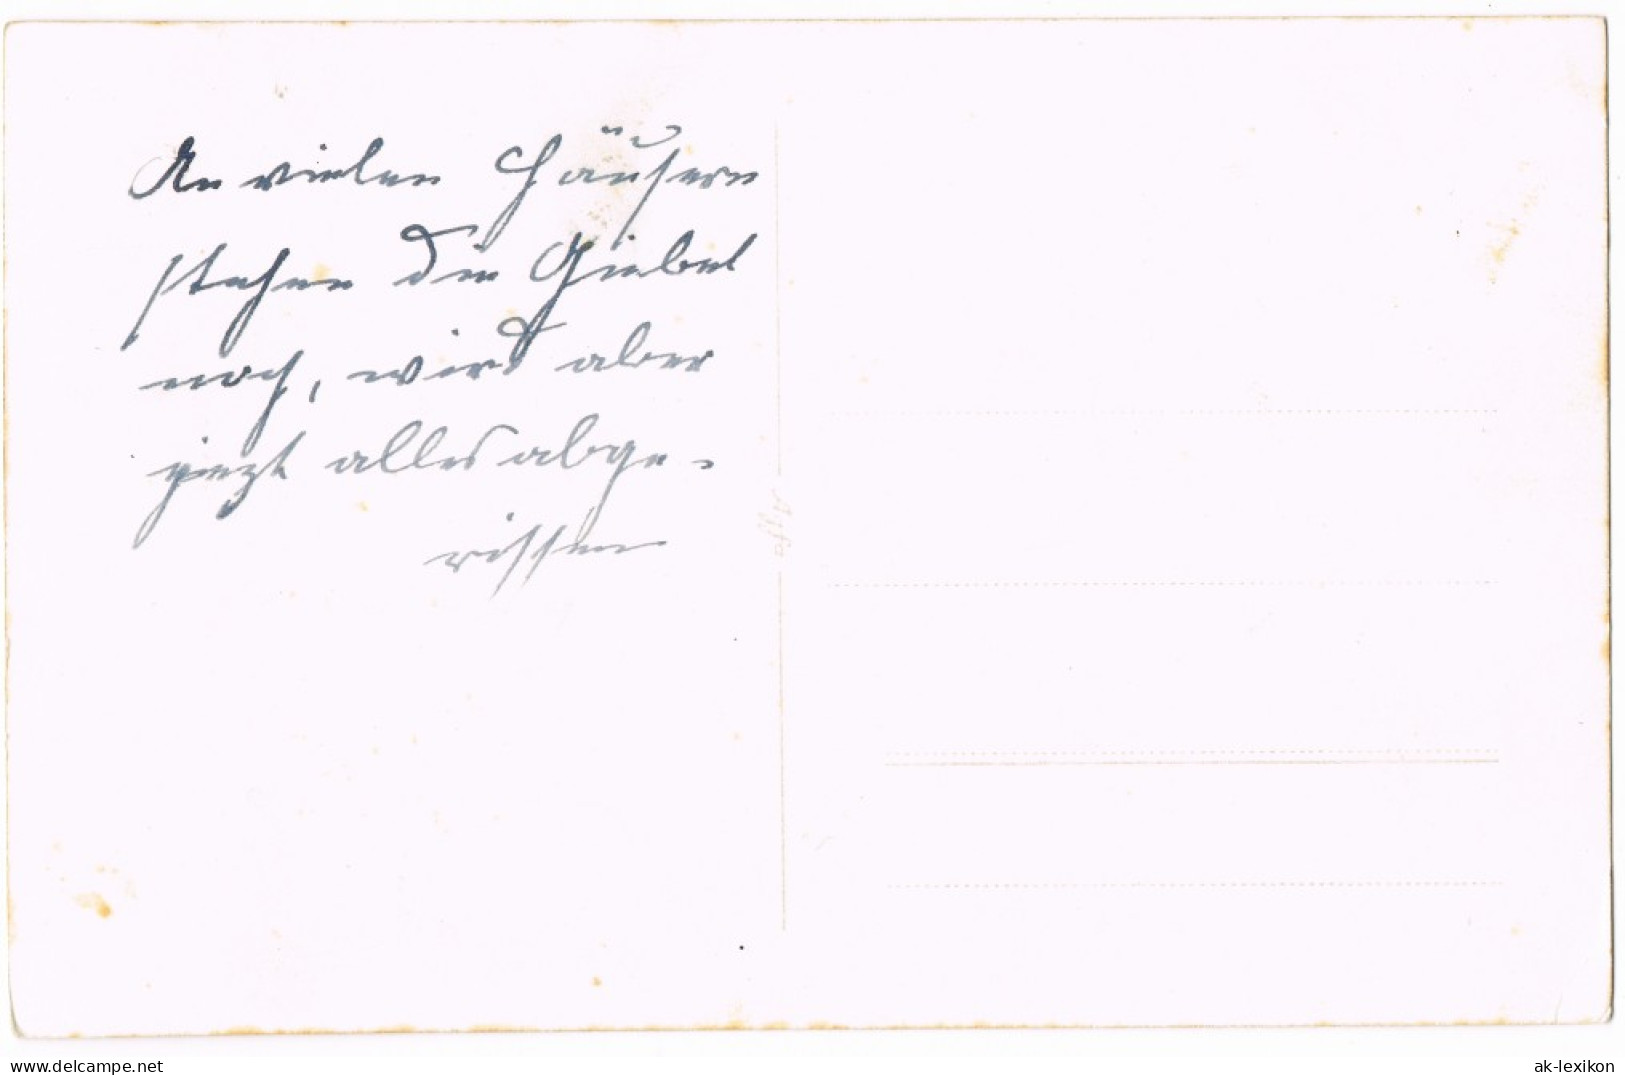 An vielen Häusern
stehen die Giebel
noch, wird aber
jezt alles abge-
rissen
Agfa
www.delcampe.net
ak-lexikon